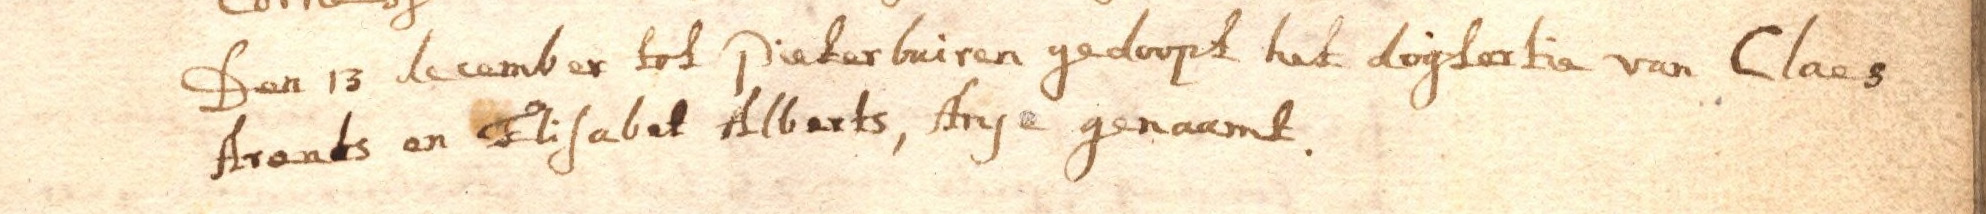 Den 13 december tot Pieterbuiren gedoopt het dogtertie van Claes
Arents en Elisabet Alberts, Anje genaamt.